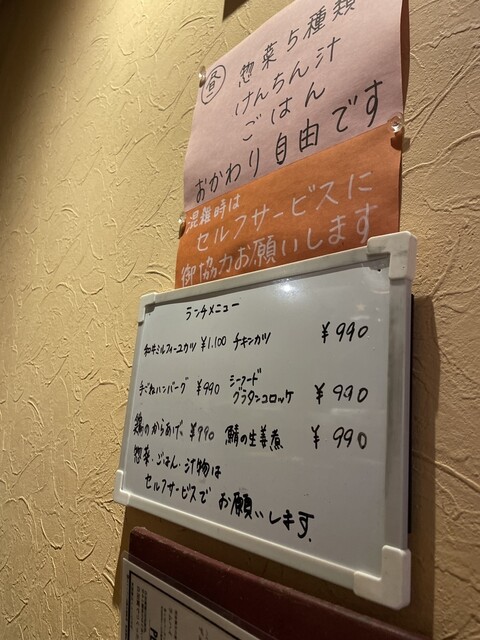 昼 惣菜5種類
けんちん汁
ごはん
おかわり自由です
混雑時は
セルフサービスに
御協力お願いします
ランチメニュー
和牛ミルフィーユカツ ¥1,100 チキンカツ ¥990
手ごねハンバーグ ¥990 シーフード
グラタンコロッケ ¥990
鶏のからあげ ¥990 鯖の生姜煮 ¥990
惣菜・ごはん・汁物は
セルフサービスで お願いします.